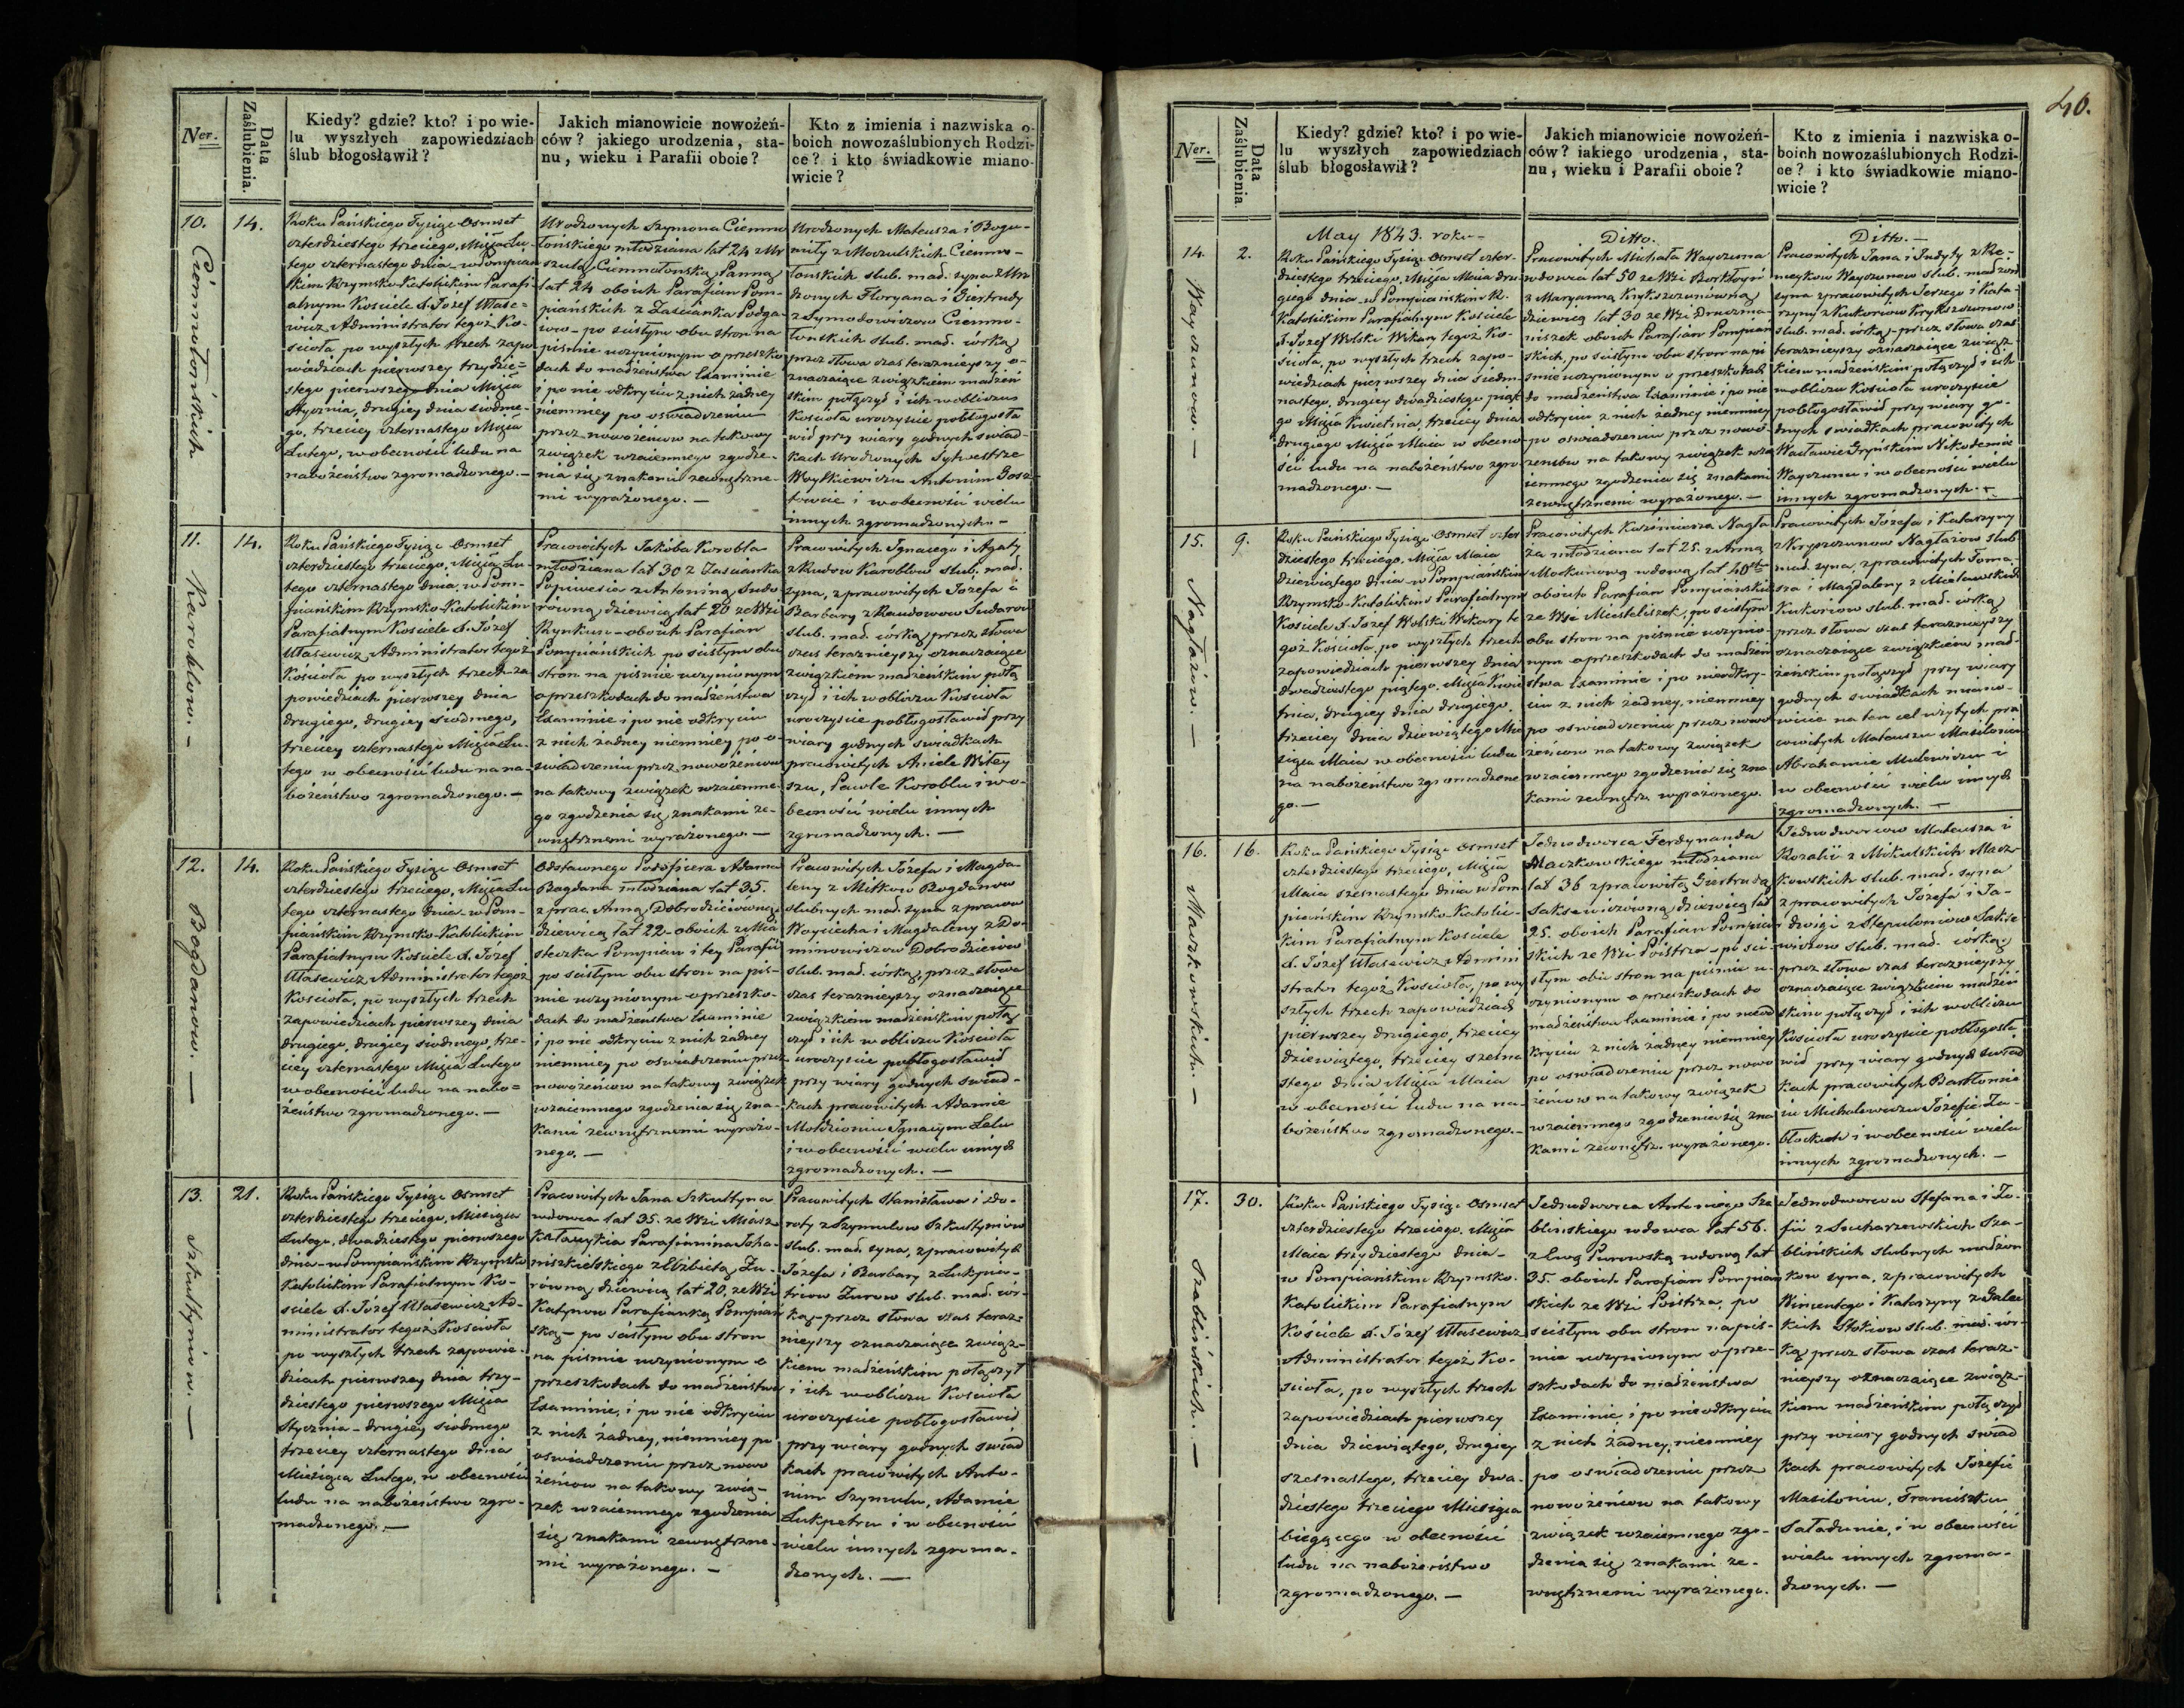 Ner.
Data Zaślubienia.
Kiedy? gdzie? kto? i po wie-
lu wyszłych zapowiedziach
ślub błogosławił?
Jakich mianowicie nowożeń-
ców? jakiego urodzenia, sta-
nu, wieku i Parafii oboie?
Kto z imienia i nazwiska o-
boich nowozaślubionych Rodzi-
ce? i kto świadkowie miano-
wicie?
10.
14.
Ciemnołońskich
Roku Pańskiego Tysiąc Osmset
czterdziestego trzeciego, Miąsa Lu-
tego czternastego dnia w Pompian
skim Rzymsko-Katolickim Parafi-
alnym Kościele X. Józef Utase-
wicz Administrator tegoż Ko-
ścioła po wyszłych trzech zapo
wiedziach pierwszey trzydzie-
stego pierwszego dnia Miąsa
Stycznia, drugiey dnia siódme-
go, trzeciey czternastego Miąsa
Lutego, w obecności ludu na
nabożeństwo zgromadzonego. —
Urodzonych Szymona Ciemno
łońskiego młodziana lat 24 z Ur
szulą Ciemnołońską Panną
lat 24 oboich Parafian Pom-
piańskich z Zaścianka Podga-
iow - po ścisłym obu stron na
pismie uczynionym o przeszko
dach do małżeństwa Examinie
i po nie odkryciu z nich żadney
niemniey po oświadczeniu
przez nowożeńcow na takowy
związek wzaiemnego zgodze-
nia się znakami zewnętrzne-
mi wyrażonego. —
Urodzonych Mateusza i Bogu-
miły z Moculskich Ciemno-
łońskich slub. mał. syna z Uro
dzonych Floryana i Giertrudy
z Symodowiczow Ciemno-
łońskich slub. mał. córką
przez słowa czas teraznieyszy o-
znaczaiące związkiem małżeń
skim połączył i ich w obliczu
Kościoła uroczyscie pobłogosła
wił przy wiary godnych swiad-
kach Urodzonych Sylwestrze
Woytkiewiczu Antonim Gosz
towcie i w obecności wielu
innych zgromadzonych. —
11.
14.
Karoblow. —
Roku Pańskiego Tysiąc Osmset
czterdziestego trzeciego, Miąsa Lu-
tego czternastego dnia, w Pom-
piańskim Rzymsko-Katolickim
Parafialnym Kościele X. Józef
Utasewicz Administrator tegoż
Kościoła po wyszłych trzech za
powiedziach pierwszey dnia
drugiego, drugiey siodmego,
trzeciey czternastego Miąsa Lu-
tego w obecności ludu na na-
bożeństwo zgromadzonego. —
Pracowitych Jakóba Korobla
młodziana lat 30 z Zascianka
Popiwesia z Antoniną Sudo
równą dziewicą lat 20 ze Wsi
Rynkun - oboich Parafian
Pompiańskich po ścisłym obu
stron na pismie uczynionym
o przeszkodach do małżeństwa
Examinie i po nie odkryciu
z nich żadney niemniey po o-
swiadczeniu przez nowożeńcow
na takowy związek wzaiemne-
go zgodzenia się znakami ze-
wnętrznemi wyrażonego. —
Pracowitych Ignacego i Agaty
z Rudow Karoblow slub. mał.
syna, z pracowitych Jozefa i
Barbary z Raudowow Sudorow
slub. mał. córką, przez słowa
czas teraznieyszy oznaczaiące
związkiem małżeńskim połą
czył i ich w obliczu Kościoła
uroczyscie pobłogosławił przy
wiary godnych swiadkach
pracowitych Aniele Witey
szu, Pawle Koroblu i w o-
becności wielu innych
zgromadzonych. —
12.
14.
Bogdanow. —
Roku Pańskiego Tysiąc Osmset
czterdziestego trzeciego, Miąsa Lu
tego czternastego dnia - w Pom-
piańskim Rzymsko-Katolickim
Parafialnym Kościele X. Józef
Utasewicz Administrator tegoż
Kościoła, po wyszłych trzech
zapowiedziach pierwszey dnia
drugiego, drugiey siodmego, trze-
ciey czternastego Miąsa Lutego
w obecności ludu na nabo-
żeństwo zgromadzonego. —
Odstawnego Podoficera Adama
Bagdana młodziana lat 35.
z prac. Anną Dobrodzieiówną
dziewicą lat 22 - oboich z Mia
steczka Pompian i tey Parafii
po ścisłym obu stron na pis-
mie uczynionym o przeszko-
dach do małżeństwa Examinie
i po nie odkryciu z nich żadney
niemniey po oświadczeniu przez
nowożeńcow na takowy związek
wzaiemnego zgodzenia się zna-
kami zewnętrznemi wyrażo-
nego. —
Pracowitych Józefa i Magda
leny z Mitkow Bogdanow
slubnych mał. syna z pracow
Woyciecha i Magdaleny z Do-
minowiczow Dobrodzieiow
slub. mał. córką, przez słowa
czas teraznieyszy oznaczaiące
związkiem małżeńskim połą
czył i ich w obliczu Kościoła
uroczyscie pobłogosławił
przy wiary godnych swiad-
kach pracowitych Adamie
Moldzionu Ignacym Lelu
i w obecności wielu innych
zgromadzonych. —
13.
21.
Szkultyniow. —
Roku Pańskiego Tysiąc Osmset
czterdziestego trzeciego, Miesiąca
Lutego, dwadziestego pierwszego
dnia - w Pompiańskim Rzymsko
Katolickim Parafialnym Ko-
ściele X. Józef Utasewicz Ad-
ministrator tegoż Kościoła
po wyszłych trzech zapowie-
dziach pierwszey dnia trzy-
dziestego pierwszego Miąsa
Stycznia - drugiey siodmego
trzeciey czternastego dnia
Miesiąca Lutego, w obecności
ludu na nabożeństwo zgro-
madzonego. —
Pracowitych Jana Szkultyna
wdowca lat 35. ze Wsi Miasz
kałaukia Parafianina Joha-
niszkielskiego z Elżbietą Zu-
równą dziewicą lat 20, ze Wsi
Katynow Parafianką Pompian
ską - po ścisłym obu stron
na pismie uczynionym o
przeszkodach do małżeństwa
Examinie, i po nie odkryciu
z nich żadney, niemniey po
oświadczeniu przez nowo
żeńcow na takowy zwią-
zek wzaiemnego zgodzenia
się znakami zewnętrzne-
mi wyrażonego. —
Pracowitych Stanisława i Do-
roty z Szymulow Szkultyniow
slub. mał. syna, z pracowitych
Józefa i Barbary z Lukpie-
trisow Zurow slub. mał. cór-
ką - przez słowa czas teraz-
nieyszy oznaczaiące związ-
kiem małżeńskim połączył
i ich w obliczu Kościoła
uroczyscie pobłogosławił
przy wiary godnych swiad
kach pracowitych Anto-
nim Szymulu, Adamie
Lukpetru i w obecności
wielu innych zgroma-
dzonych. —
40.
Ner.
Data Zaślubienia.
Kiedy? gdzie? kto? i po wie-
lu wyszłych zapowiedziach
ślub błogosławił?
Jakich mianowicie nowożeń-
ców? iakiego urodzenia, sta-
nu, wieku i Parafii oboie?
Kto z imienia i nazwiska o-
boich nowozaślubionych Rodzi-
ce? i kto świadkowie miano-
wicie?
May 1843. roku -
Ditto.
Ditto. —
14.
2.
Wayczunow. —
Roku Pańskiego Tysiąc Osmset czter-
dziestego trzeciego, Miąsa Maia dru-
giego dnia - w Pompiańskim R.
Katolickim Parafialnym Kościele
X. Józef Wolski Wikary tegoż Ko-
ścioła, po wyszłych trzech zapo-
wiedziach pierwszey dnia siedm-
nastego, drugiey dwadziestego piąt
go Miąsa Kwietnia, trzeciey dnia
drugiego Miąsa Maia w obecno
ści ludu na nabożeństwo zgro
madzonego. —
Pracowitych Michała Wayczuna
wdowca lat 50 ze Wsi
z Maryanną Krykszczunowną
dziewicą lat 30 ze Wsi Druczma-
niszek oboich Parafian Pompian
skich, po ścisłym obu stron na pi
smie uczynionym o przeszkodach
do małżeństwa Examinie i po nie
odkryciu z nich żadney niemniey
po oświadczeniu przez nowo-
żeńcow na takowy związek wza
iemnego zgodzenia się znakami
zewnętrznemi wyrażonego. —
Pracowitych Jana i Judyty z Re-
meykow Wayczunow slub. małżon
syna z pracowitych Jerzego i Kata-
rzyny z Kukorisow Krykszczunow
slub. mał. córką - przez słowa czas
teraznieyszy oznaczaiące związ-
kiem małżeńskim połączył i ich
w obliczu Kościoła uroczyscie
pobłogosławił przy wiary go-
dnych swiadkach pracowitych
Wacławie Gryńskim Nikodemie
Wayczunu i w obecności wielu
innych zgromadzonych. —
15.
9.
Nagłażow. —
Roku Pańskiego Tysiąc Osmset czter
dziestego trzeciego, Miąsa Maia
dziewiątego dnia - w Pompiańskim
Rzymsko-Katolickim Parafialnym
Kościele X. Jozef Wolski Wikary te
goż Kościoła, po wyszłych trzech
zapowiedziach pierwszey dnia
dwudziestego piątego Miąsa Kwie
tnia, drugiey dnia drugiego,
trzeciey dnia dziewiątego Mie
siąca Maia w obecności ludu
na nabożeństwo zgromadzone
go. —
Pracowitych Kazimierza Nagła
ża młodziana lat 25. z Anną
Mockunową wdową lat 40
oboich Parafian Pompiańskich
ze Wsi Mieleliszek, po ścisłym
obu stron na pismie uczynio-
nym o przeszkodach do małżeń
stwa Examinie i po nieodkry-
ciu z nich żadney, niemniey
po oświadczeniu przez nowo
żeńcow na takowy związek
wzaiemnego zgodzenia się zna
kami zewnętrz. wyrażonego.
Pracowitych Józefa i Katarzyny
z Krypszczunow Nagłażow slub
mał. syna, z pracowitych Toma-
sza i Magdaleny z Mielewskich
Kukorisow slub. mał. córką
przez słowa czas teraznieyszy
oznaczaiące związkiem mał-
żeńskim połączył przy wiary
godnych swiadkach miano-
wicie na ten cel użytych pra
cowitych Mateuszu Masiloniu
Abrahamie Mulewiczu i
w obecności wielu innych
zgromadzonych. —
16.
16.
Maczkowskich. —
Roku Pańskiego Tysiąc Osmset
czterdziestego trzeciego, Miąsa
Maia szesnastego dnia w Pom
piańskim Rzymsko-Katolic-
kim Parafialnym Kościele
X. Józef Utasewicz Admini
strator tegoż Kościoła, po wy
szłych trzech zapowiedziach
pierwszey drugiego, trzeciey
dziewiątego, trzeciey szesna
stego dnia Miąsa Maia
w obecności ludu na na-
bożeństwo zgromadzonego. —
Jednodworca Ferdynanda
Maczkowskiego młodziana
lat 36 z pracowitą Giertrudą
Saksewiczówną dziewicą lat
25. oboich Parafian Pompian
skich ze Wsi Poistrza - po ści-
słym obu stron na pismie u-
czynionym o przeszkodach do
małżeństwa Examinie i po nieod
kryciu z nich żadney niemniey
po oświadczeniu przez nowo
żeńcow na takowy związek
wzaiemnego zgodzenia się zna
kami zewnętrz. wyrażonego.
Jednodworcow Mateusza i
Rozalii z Mikulskich Macz-
kowskich slub. mał. syna
z pracowitych Józefa i Ja-
dwigi z Stepuloniow Sakse
wiczow slub. mał. córką
przez słowa czas teraznieyszy
oznaczaiące związkiem małżeń
skim połączył i ich w obliczu
Kościoła uroczyscie pobłogosła
wił przy wiary godnych swiad
kach pracowitych Bartłomie
iu Michalewiczu Józefie Za-
błockich i w obecności wielu
innych zgromadzonych. —
17.
30.
Szablińskich. —
Roku Pańskiego Tysiąc Osmset
czterdziestego trzeciego, Miąsa
Maia trzydziestego dnia -
w Pompiańskim Rzymsko-
Katolickim Parafialnym
Kościele X. Józef Utasewicz
Administrator tegoż Ko-
ścioła, po wyszłych trzech
zapowiedziach pierwszey
dnia dziewiątego, drugiey
szesnastego, trzeciey dwa-
dziestego trzeciego Miesiąca
bieżącego w obecności
ludu na nabożeństwo
zgromadzonego. —
Jednodworca Antoniego Sza
blińskiego wdowca lat 56.
z Ewą Purowską wdową lat
35. oboich Parafian Pompian
skich ze Wsi Poistrza, po
ścisłym obu stron na pis-
mie uczynionym o prze-
szkodach do małżeństwa
Examinie, i po nieodkryciu
z nich żadney, niemniey
po oświadczeniu przez
nowożeńcow na takowy
związek wzaiemnego zgo-
dzenia się znakami ze-
wnętrznemi wyrażonego.
Jednodworcow Stefana i Zo-
fii z Sucharzewskich Sza-
blińskich slubnych małżon
kow syna, z pracowitych
Wincentego i Katarzyny z Galec
kich Stokiow slub. mał. cór-
ką przez słowa czas teraz-
nieyszy oznaczaiące związ-
kiem małżeńskim połączył
przy wiary godnych swiad
kach pracowitych Józefie
Masiloniu, Franciszku
Saładunie, i w obecności
wielu innych zgroma-
dzonych. —